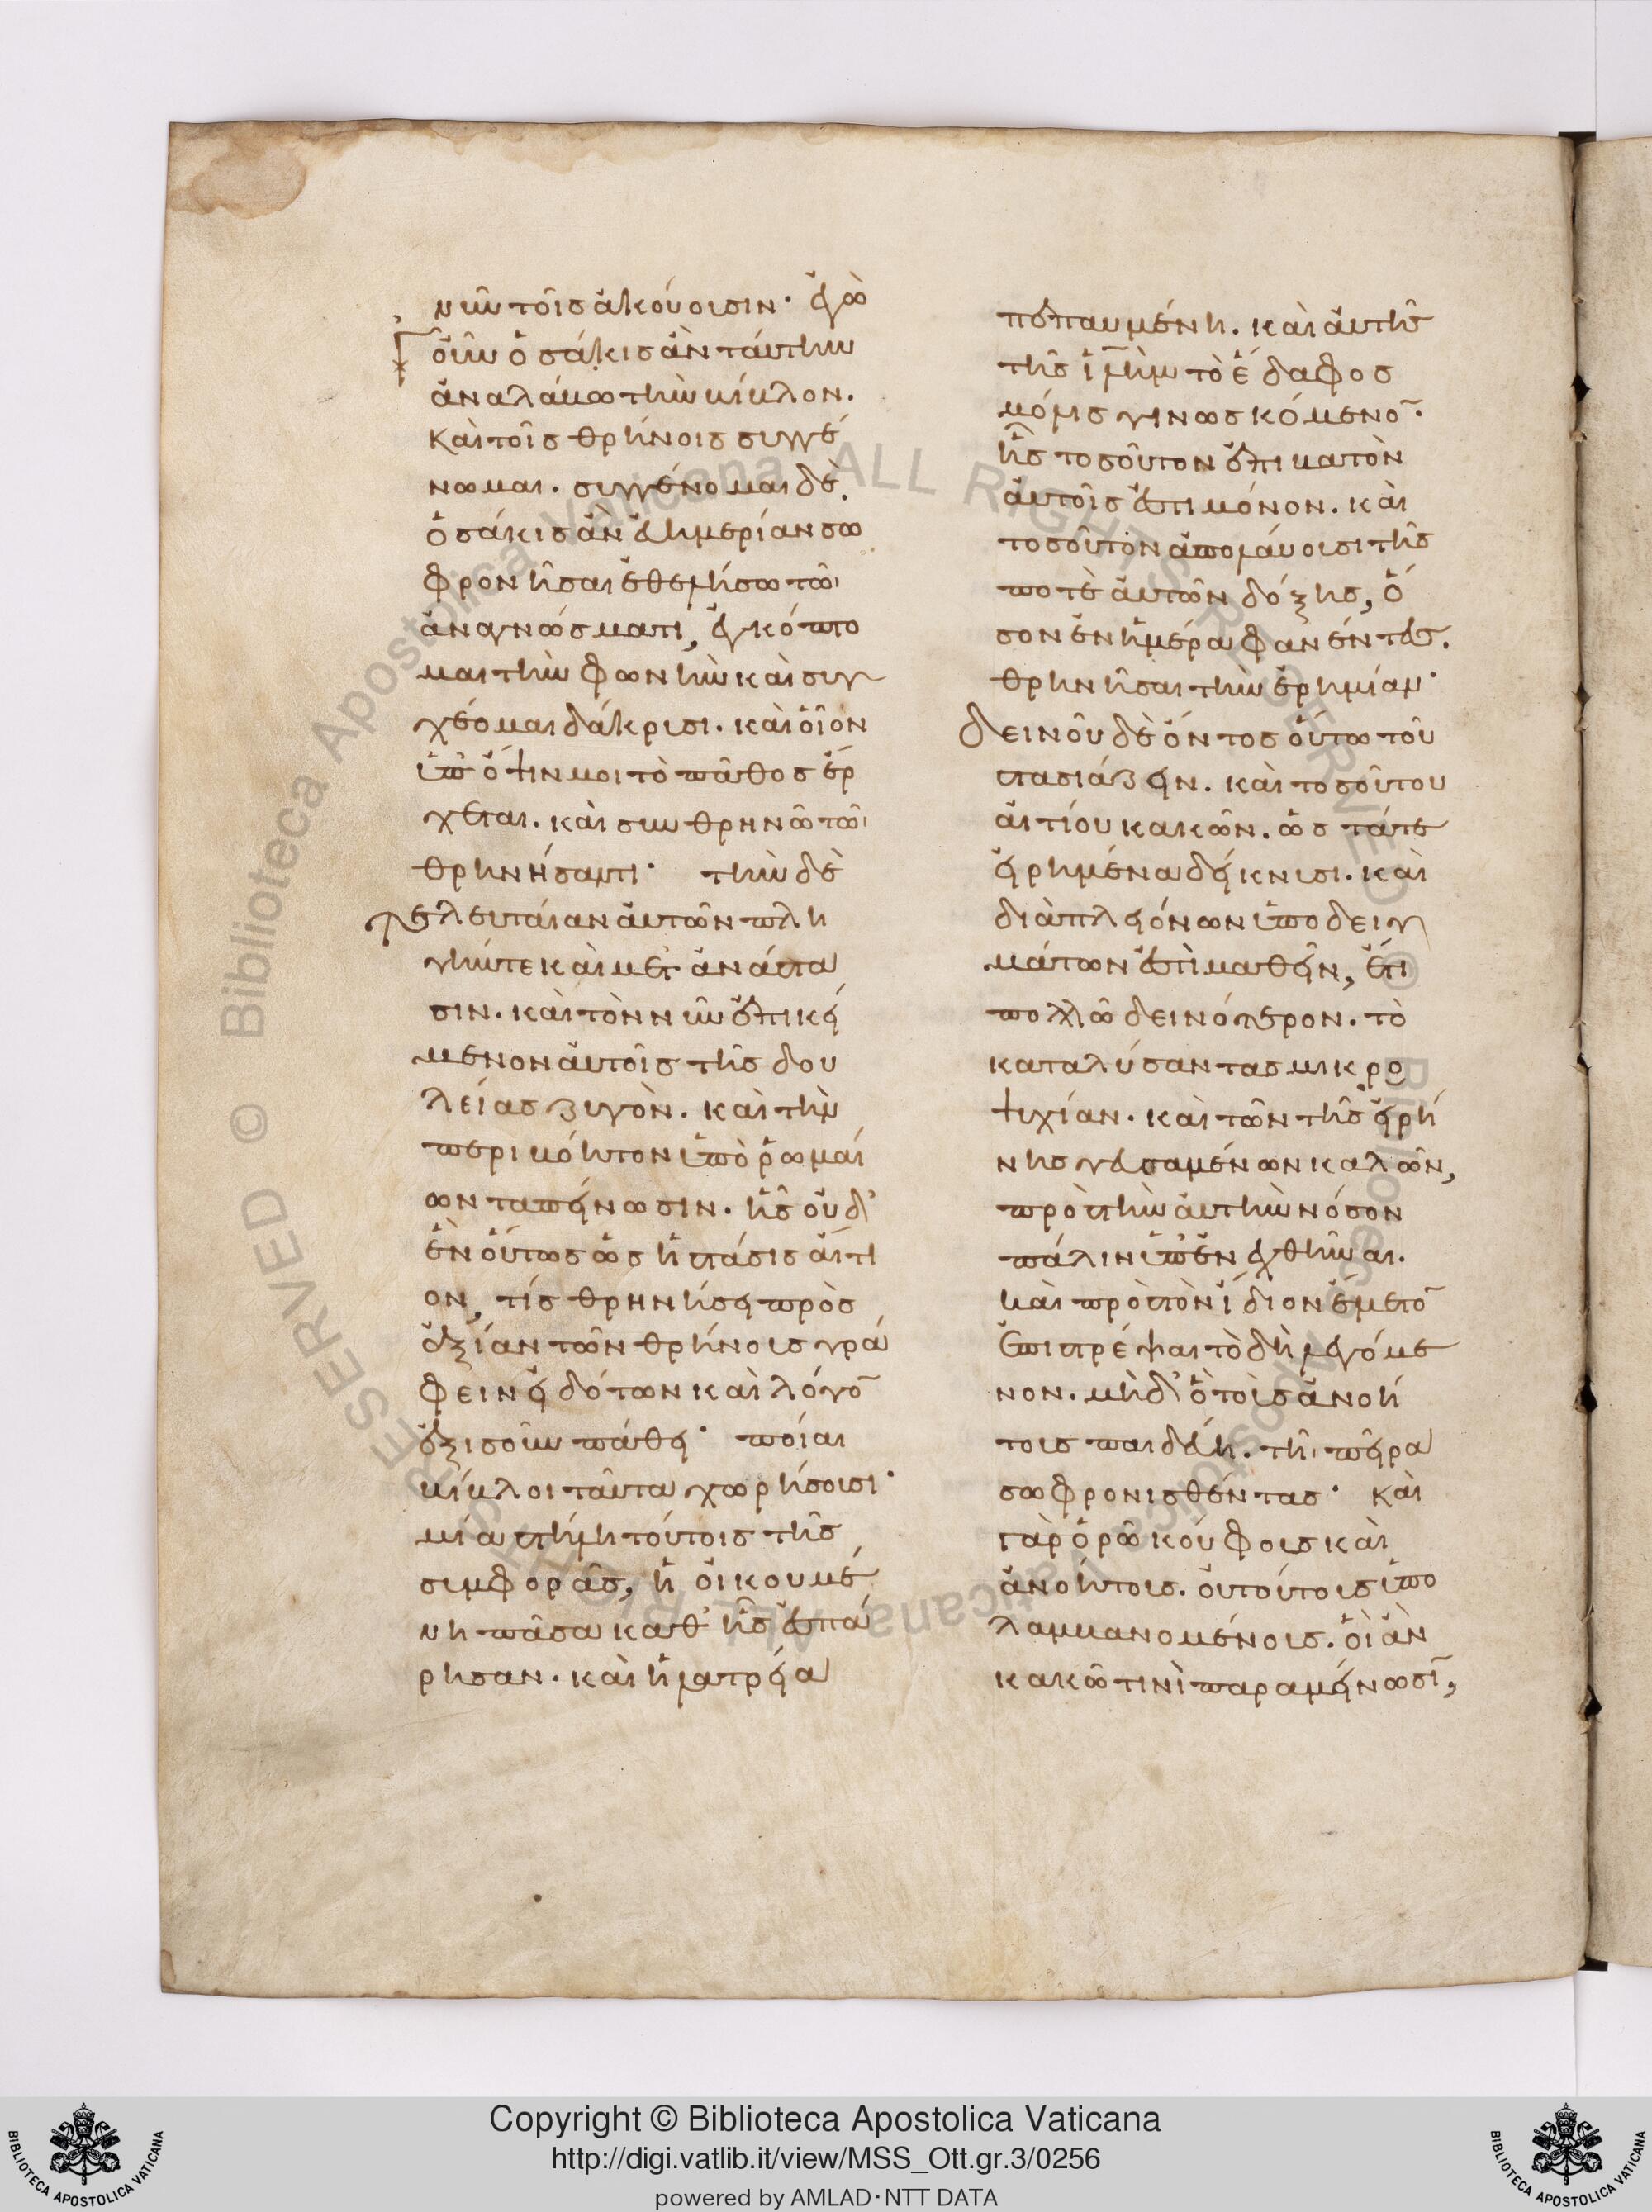 νῦν τοῖς ἀκούουσιν· ἐγὼ
οὖν ὁσάκις ἂν ταύτην
ἀναλάβω τὴν βίβλον.
καὶ τοῖς θρήνοις συγγέ
νωμαι. συγγένομαι δὲ,
ὁσάκις ἂν εὐημερίαν σω
φρονῆσαι ἐθελήσω τῶι
ἀναγνώσματι, ἐγκόπτο
μαι τὴν φωνὴν καὶ συγ
χέομαι δάκρυσι. καὶ οἷον
ὑπ' ὄψιν μοι τὸ πάθος ἔρ
χεται. καὶ συνθρηνῶ τῶι
θρηνήσαντι· τὴν δὲ
τελευταίαν αὐτῶν πλη
γήν τε καὶ μετανάστα
σιν. καὶ τὸν νῦν ἐπικεί
μενον αὐτοῖς τῆς δου
λείας ζυγὸν. καὶ τὴν
περιβόητον ὑπὸ ῥωμαί
ων ταπείνωσιν. ἧς οὐδ'
ἓν οὕτως ὡς ἡ στάσις αἴτι
ον, τίς θρηνήσει πρὸς
ἀξίαν τῶν θρήνους γρά
φειν εἰδότων καὶ λόγο̄
ἐξισοῦν πάθει· ποίαι
βίβλοι ταῦτα χωρήσουσι·
μία στήλη τούτοις τῆς
συμφορᾶς, ἡ οἰκουμέ
νη πᾶσα καθ' ἧς ἐσπά
ρησαν. καὶ ἡ λατρεία
πεπαυμένη. καὶ αὐτῆς
τῆς ἰ̅λ̅η̅μ̅ τὸ ἔδαφος
μόλις γινωσκόμενο̄·
ἧς τοσοῦτον ἐπιβατὸν
αὐτοῖς ἐστι μόνον. καὶ
τοσοῦτον ἀπολαύουσι τῆς
ποτὲ αὐτῶν δόξης, ὅ
σον ἐν ἡμέρα φανέντες.
θρηνῆσαι τὴν ἐρημίαν·
δεινοῦ δὲ ὄντος οὕτω τοῦ
στασιάζειν. καὶ τοσούτου
αἰτίου κακῶν. ὡς τά τε
εἰρημένα δείκνυσι. καὶ
διὰ πλειόνων ὑποδειγ
μάτων ἐστὶ μαθεῖν, ἔτι
πολλῶ δεινότερον. τὸ
καταλύσαντας μικρο
ψυχίαν. καὶ τῶν τῆς εἰρή
νης γευσαμένων καλῶν,
πρὸς τὴν αὐτὴν νόσον
πάλιν ὑπενεχθῆναι.
καὶ πρὸς τὸν ἴδιον ἔμετο̄
ἐπιστρέψαι τὸ δὴ λεγόμε
νον. μηδ' ὃ τοὺς ἀνοή
τους παιδεύει. τῆι πείρα
σωφρονισθέντας· καὶ
γὰρ ὁρῶ κούφους καὶ
ἀνοήτους. οὐ τούτους ὑπο
λαμβανομένους. οἳ ἂν
κακῶ τινὶ παραμείνωσῑ,
Copyright © Biblioteca Apostolica Vaticana
http://digi.vatlib.it/view/MSS_Ott.gr.3/0256
powered by AMLAD·NTT DATA